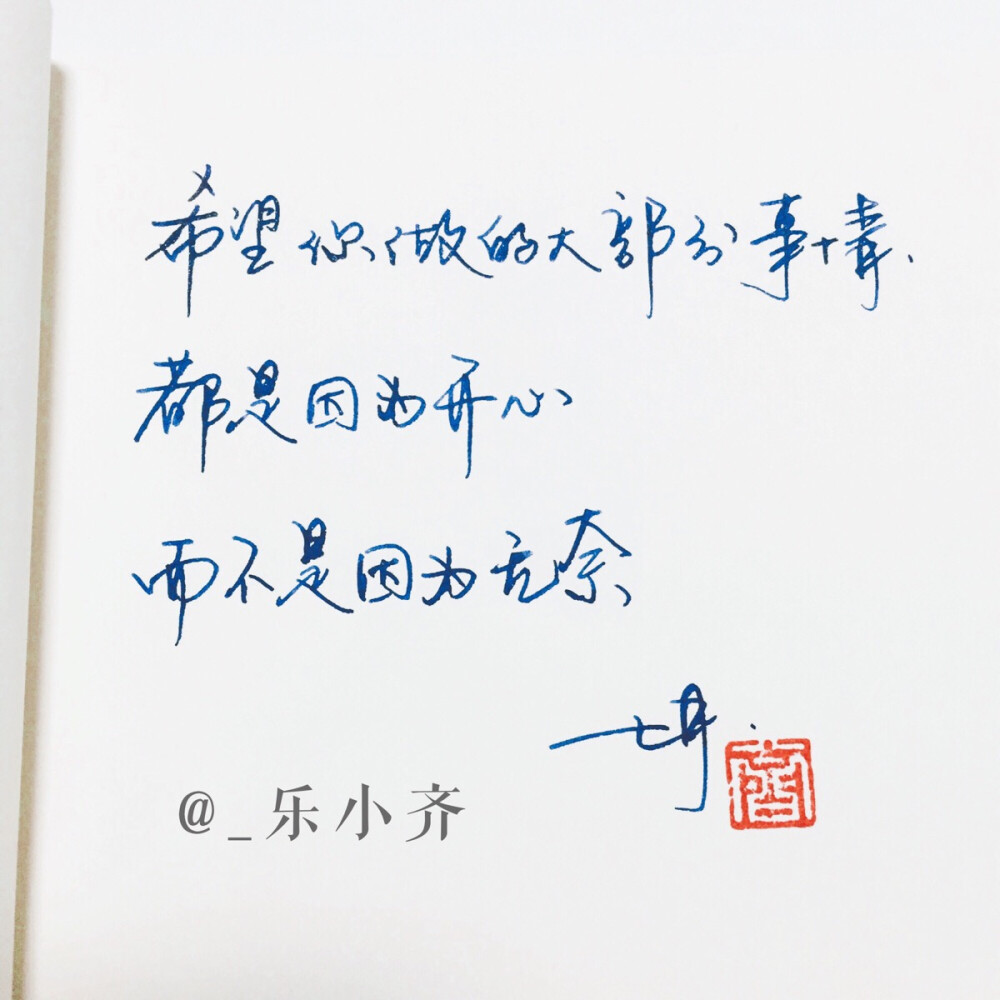 希望你做的大部分事情.
都是因为开心
而不是因为无奈
@_乐小齐